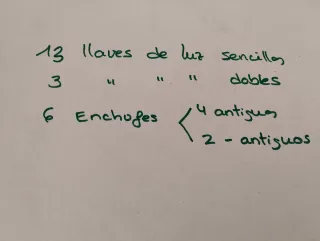 13 llaves de luz sencillas
3 " " " dobles
6 Enchufes < 4 antiguos
2 - antiguos